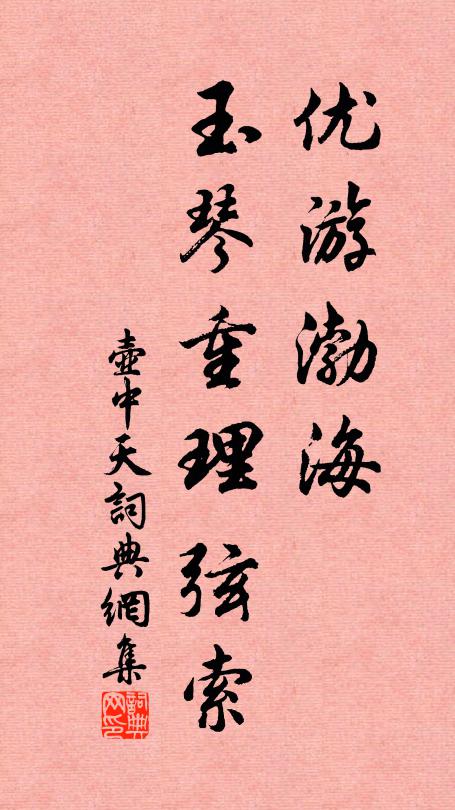 优游渤海
玉琴重理弦索
壶中天詞典網集
詞典网印